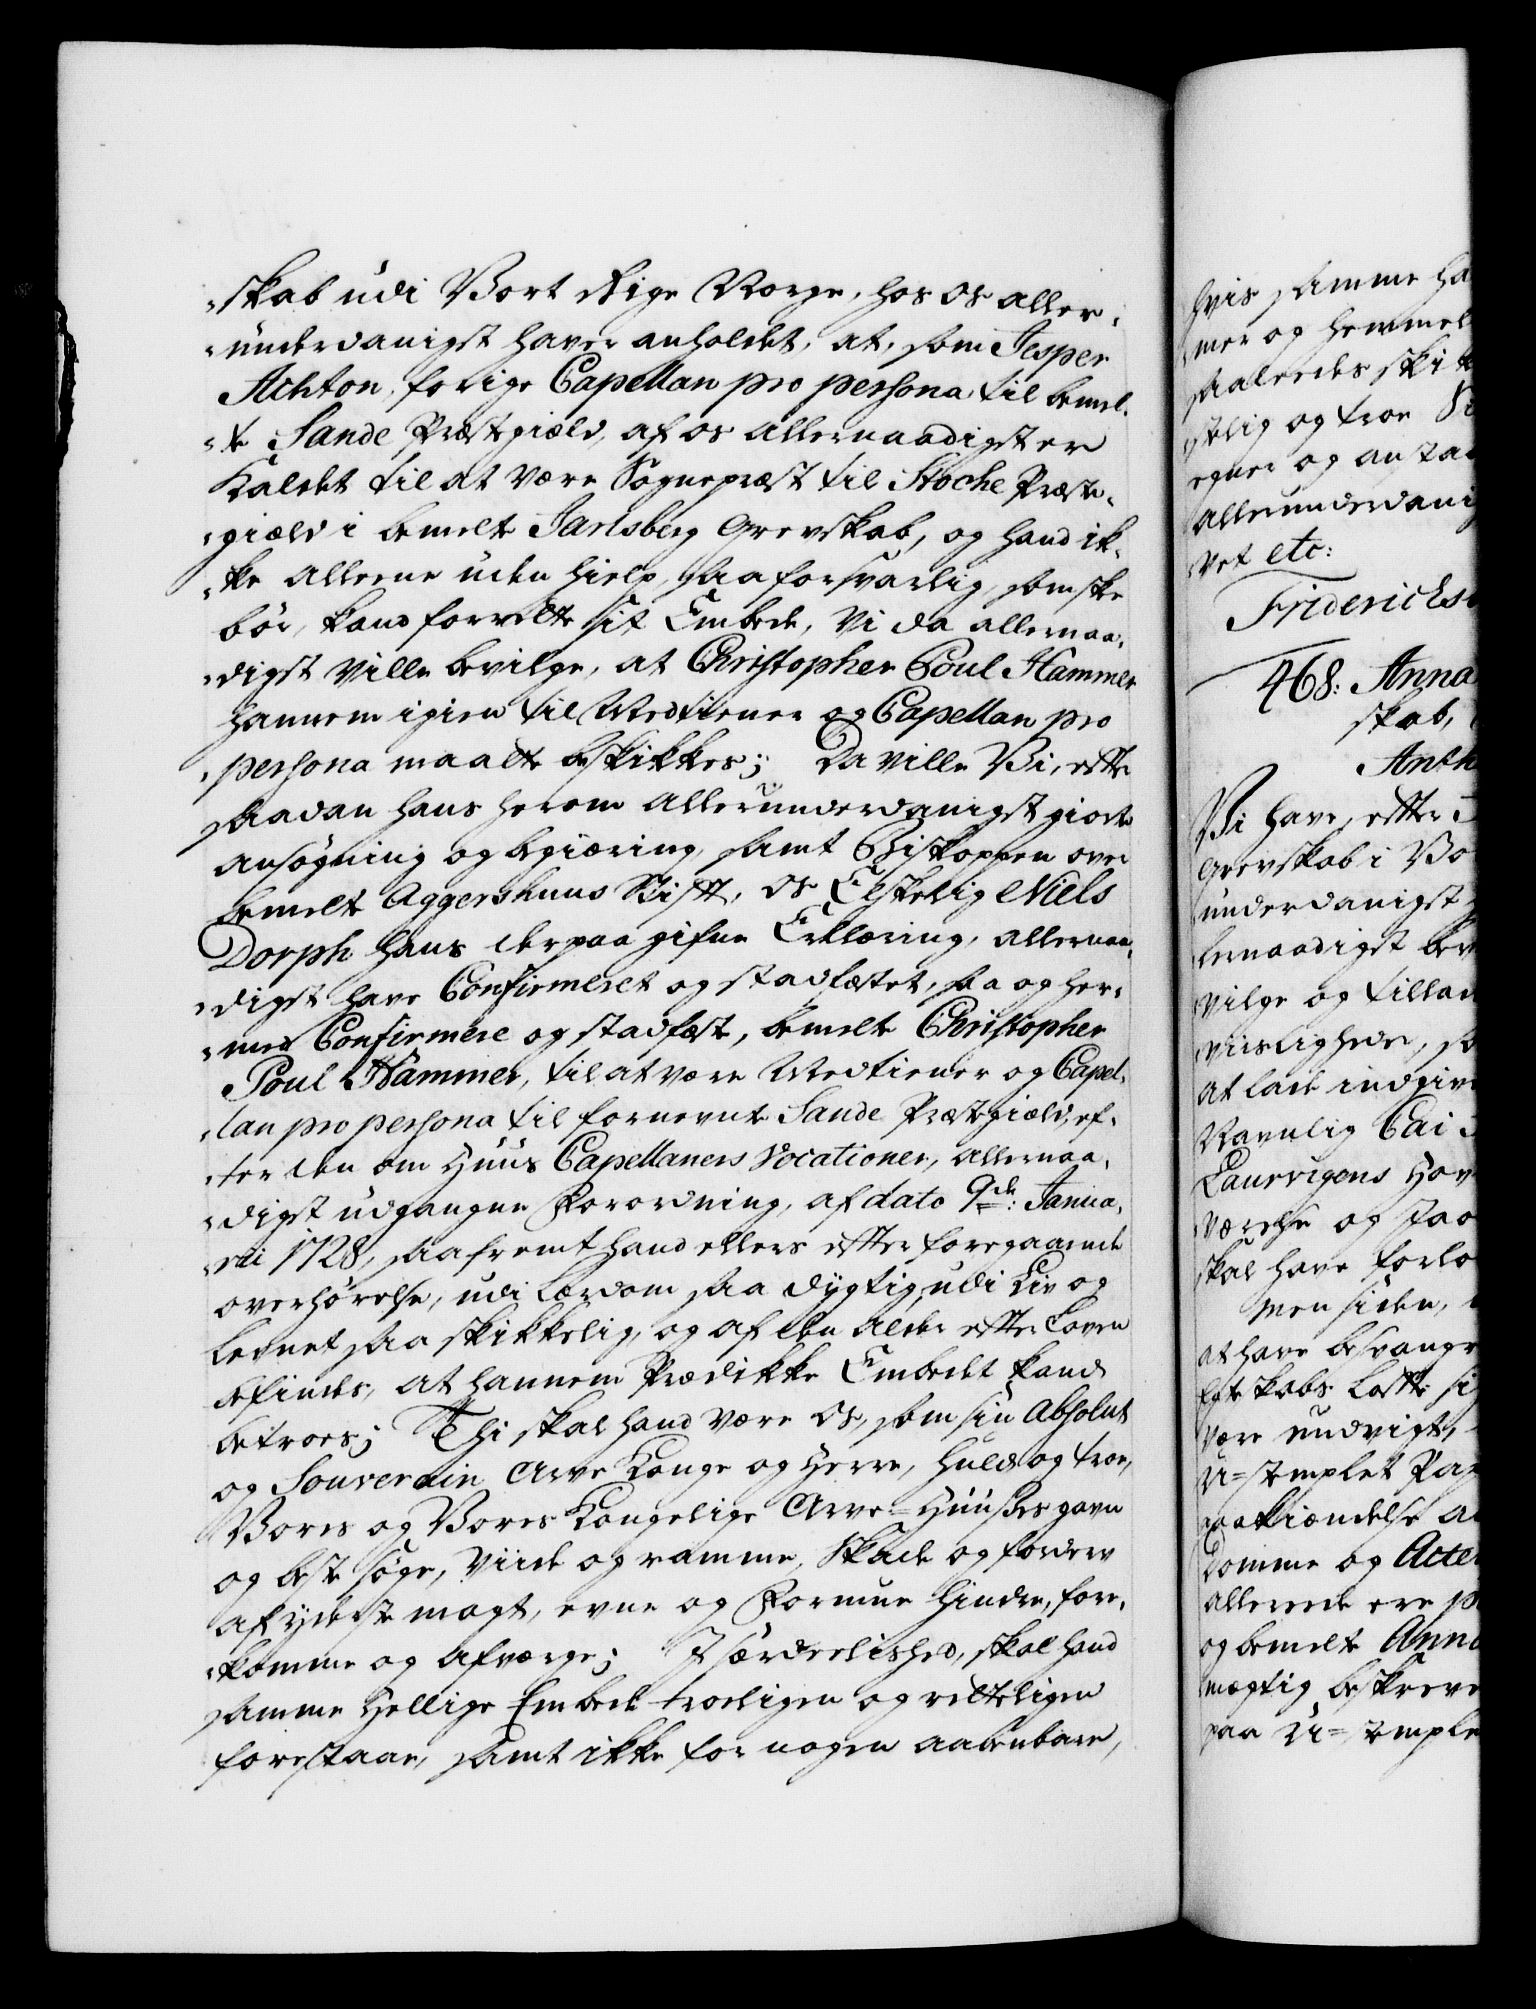 skab udi Vort Rige Norge, hos os aller-
underdanigst haver anholdet, at, som Jesper
Achton, forige Capellan pro persona til bemel-
te Sande Præstegiæld, af os allernaadigst er
Kaldet til at være Sognepræst til Stoche Præste-
giæld i bemelte Jarlsberg Grevskab, og hand ik-
ke alleene uden hielp, saa forsvarlig, som ske
bör, kand forrette sit Embede, Vi da allernaa-
digst ville bevilge, at Christopher Poul Hammer
hannem igien til Medtiener og Capellan pro
persona maatte beskikkes; Da ville Vi, efter
saadan hans herom allerunderdanigst giorte
ansögning og begiæring, samt Biskoppen over
bemelte Aggershuus Stift, os Elskelig Niels
Dorph hans derpaa gifne Erklæring, allernaa-
digst have Confirmeret og stadfæstet, saa og her-
med Confirmere og stadfæste, bemelte Christopher
Poul Hammer, til at være Medtiener og Capel-
lan pro persona til fornevnte Sande Præstegiæld, ef-
ter den om Huus Capellaners Vocationer, allernaa-
digst udgangne Forordning, af dato 9de: Janua-
rii 1728, saafremt hand ellers efter foregaaende
overhörelse, udi Lærdom saa dygtig, udi Liv og
Levnet saa skikkelig, og af den alder efter Loven
befindes, at hannem Prædikke Embedet kand
betroes; Thi skal hand være os, som sin Absolut
og Souverain Arve Konge og Herre, huld og troe,
Vores og Vores Kongelige Arve-Huuses gavn
og beste söge, Viide og ramme, Skade og forderv
af yderste magt, evne og Formue hindre, fore-
komme og afværge; I særdeelished, skal hand
samme Hellige Embede troeligen og retteligen
forestaae, samt ikke for nogen aabenbare,
hvis samme ha
mer og hemmel
saaledes skik
stelig og troe
egner og anstaa
allerunderdanig
vet etc:
Friderichs
468: Anna
skab,
Anth
Vi have, efter
Grevskab i Vo
underdanigst
lernaadigst bev
vilge og tillad
viislighede, so
at lade indgive
Navnlig Cai
Laurvigens Hov
Værelse og Jao
skal have forlo
Men siden,
at have besvangre
Egteskabs Löfte si
Være undvigt,
U-stemplet Pap
paakiendelse a
Domme og Acte
allerede ere p
og bemelte Anna
mægtig beskreve
paa U-stemple